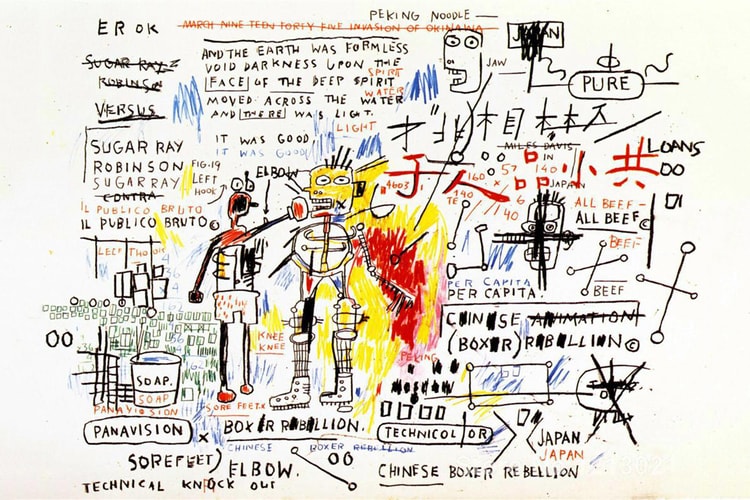 PEKING NOODLE
EROK
MARCH NINE TEEN FORTY FIVE INVASION OF OKINAWA
AND THE EARTH WAS FORMLESS
VOID DARKNESS UPON THE
SPIRIT
FACE OF THE DEEP SPIRIT
WATER
MOVED ACROSS THE WATER
AND THERE WAS LIGHT.
LIGHT
IT WAS GOOD
IT WAS GOOD
JAW
JAPAN
PURE
SUGAR RAY
ROBINSON
VERSUS
SUGAR RAY
ROBINSON
SUGARRAY
CONTRA
IL PUBLICO BRUTO
IL PUBLICO BRUTO©
FIG.19
LEFT
HOOK
ELBOW
MILES DAVIS
IN
JAPAN
于人品小共
LOANS
4603
160
57
140
140
TE
6
40
ALL BEEF-
ALL BEEF©
BEEF-
BEEF
PER CAPITA
PER CAPITA.
CHINESE ANIMATION
(BOXER) REBELLION©
LEFT
KNEE
KNEE
PEKING
SOAP.
SOAP
PANAVISION
PANAVISION
SORE FEET
BOXER REBELLION.
CHINESE BOXER REBELLION
TECHNICOLOR
JAPAN
JAPAN
SOREFEET)
ELBOW.
TECHNICAL KNOCK OUT
CHINESE BOXER REBELLION